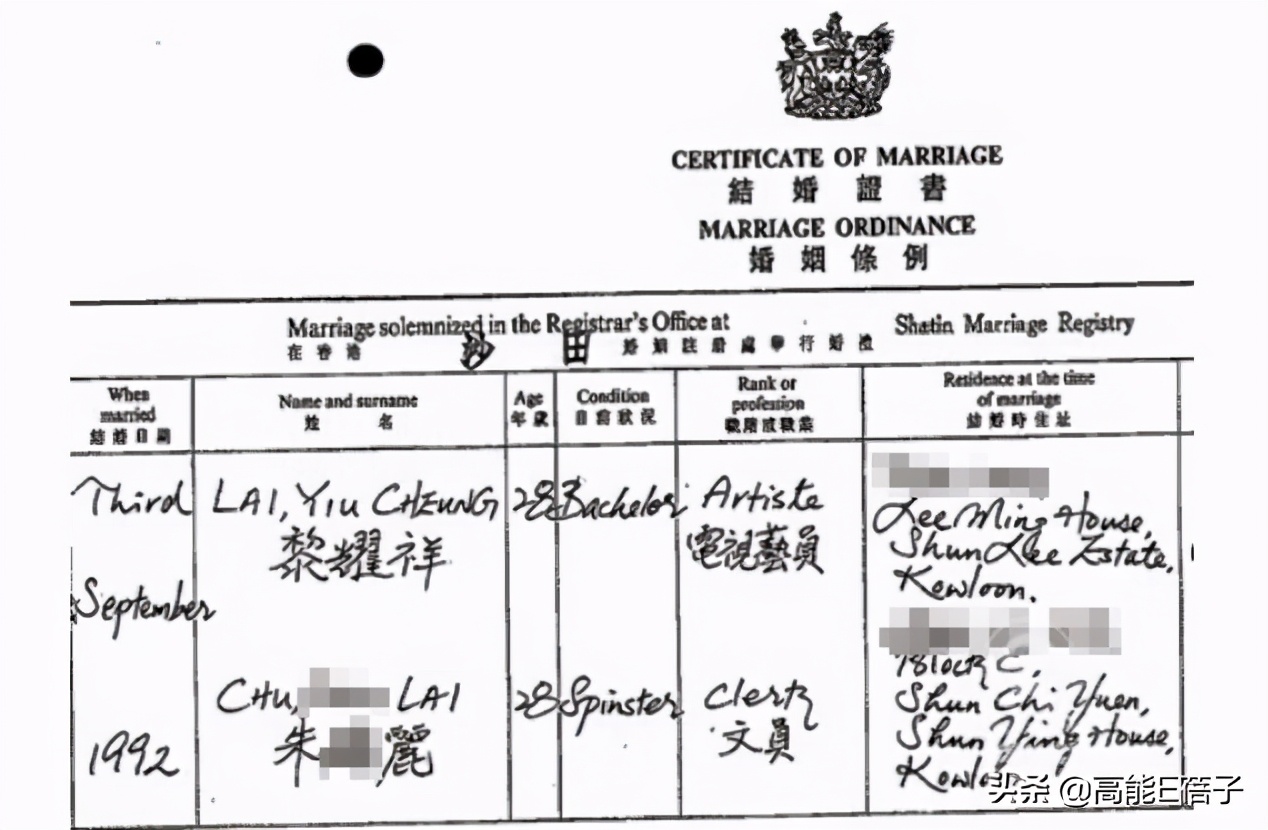 CERTIFICATE OF MARRIAGE
結婚證書
MARRIAGE ORDINANCE
婚姻條例
Marriage solemnized in the Registrar's Office at Shatin Marriage Registry
在香港 沙田 婚姻註冊處舉行婚禮
When married
結婚日期
Name and surname
姓名
Age
年歲
Condition
Rank or profession
Residence at the time of marriage
結婚時住址
Third
September
1992
LAI, YIU CHEUNG
黎耀祥
28
Bachelor
Artiste
電視藝員
Lee Ming House,
Shun Lee Estate,
Kowloon.
CHU, LAI
朱 麗
28
Spinster
Clerk
文員
Block C,
Shun Chi Yuen,
Shun Ying House,
Kowloon
头条 @高能E蓓子